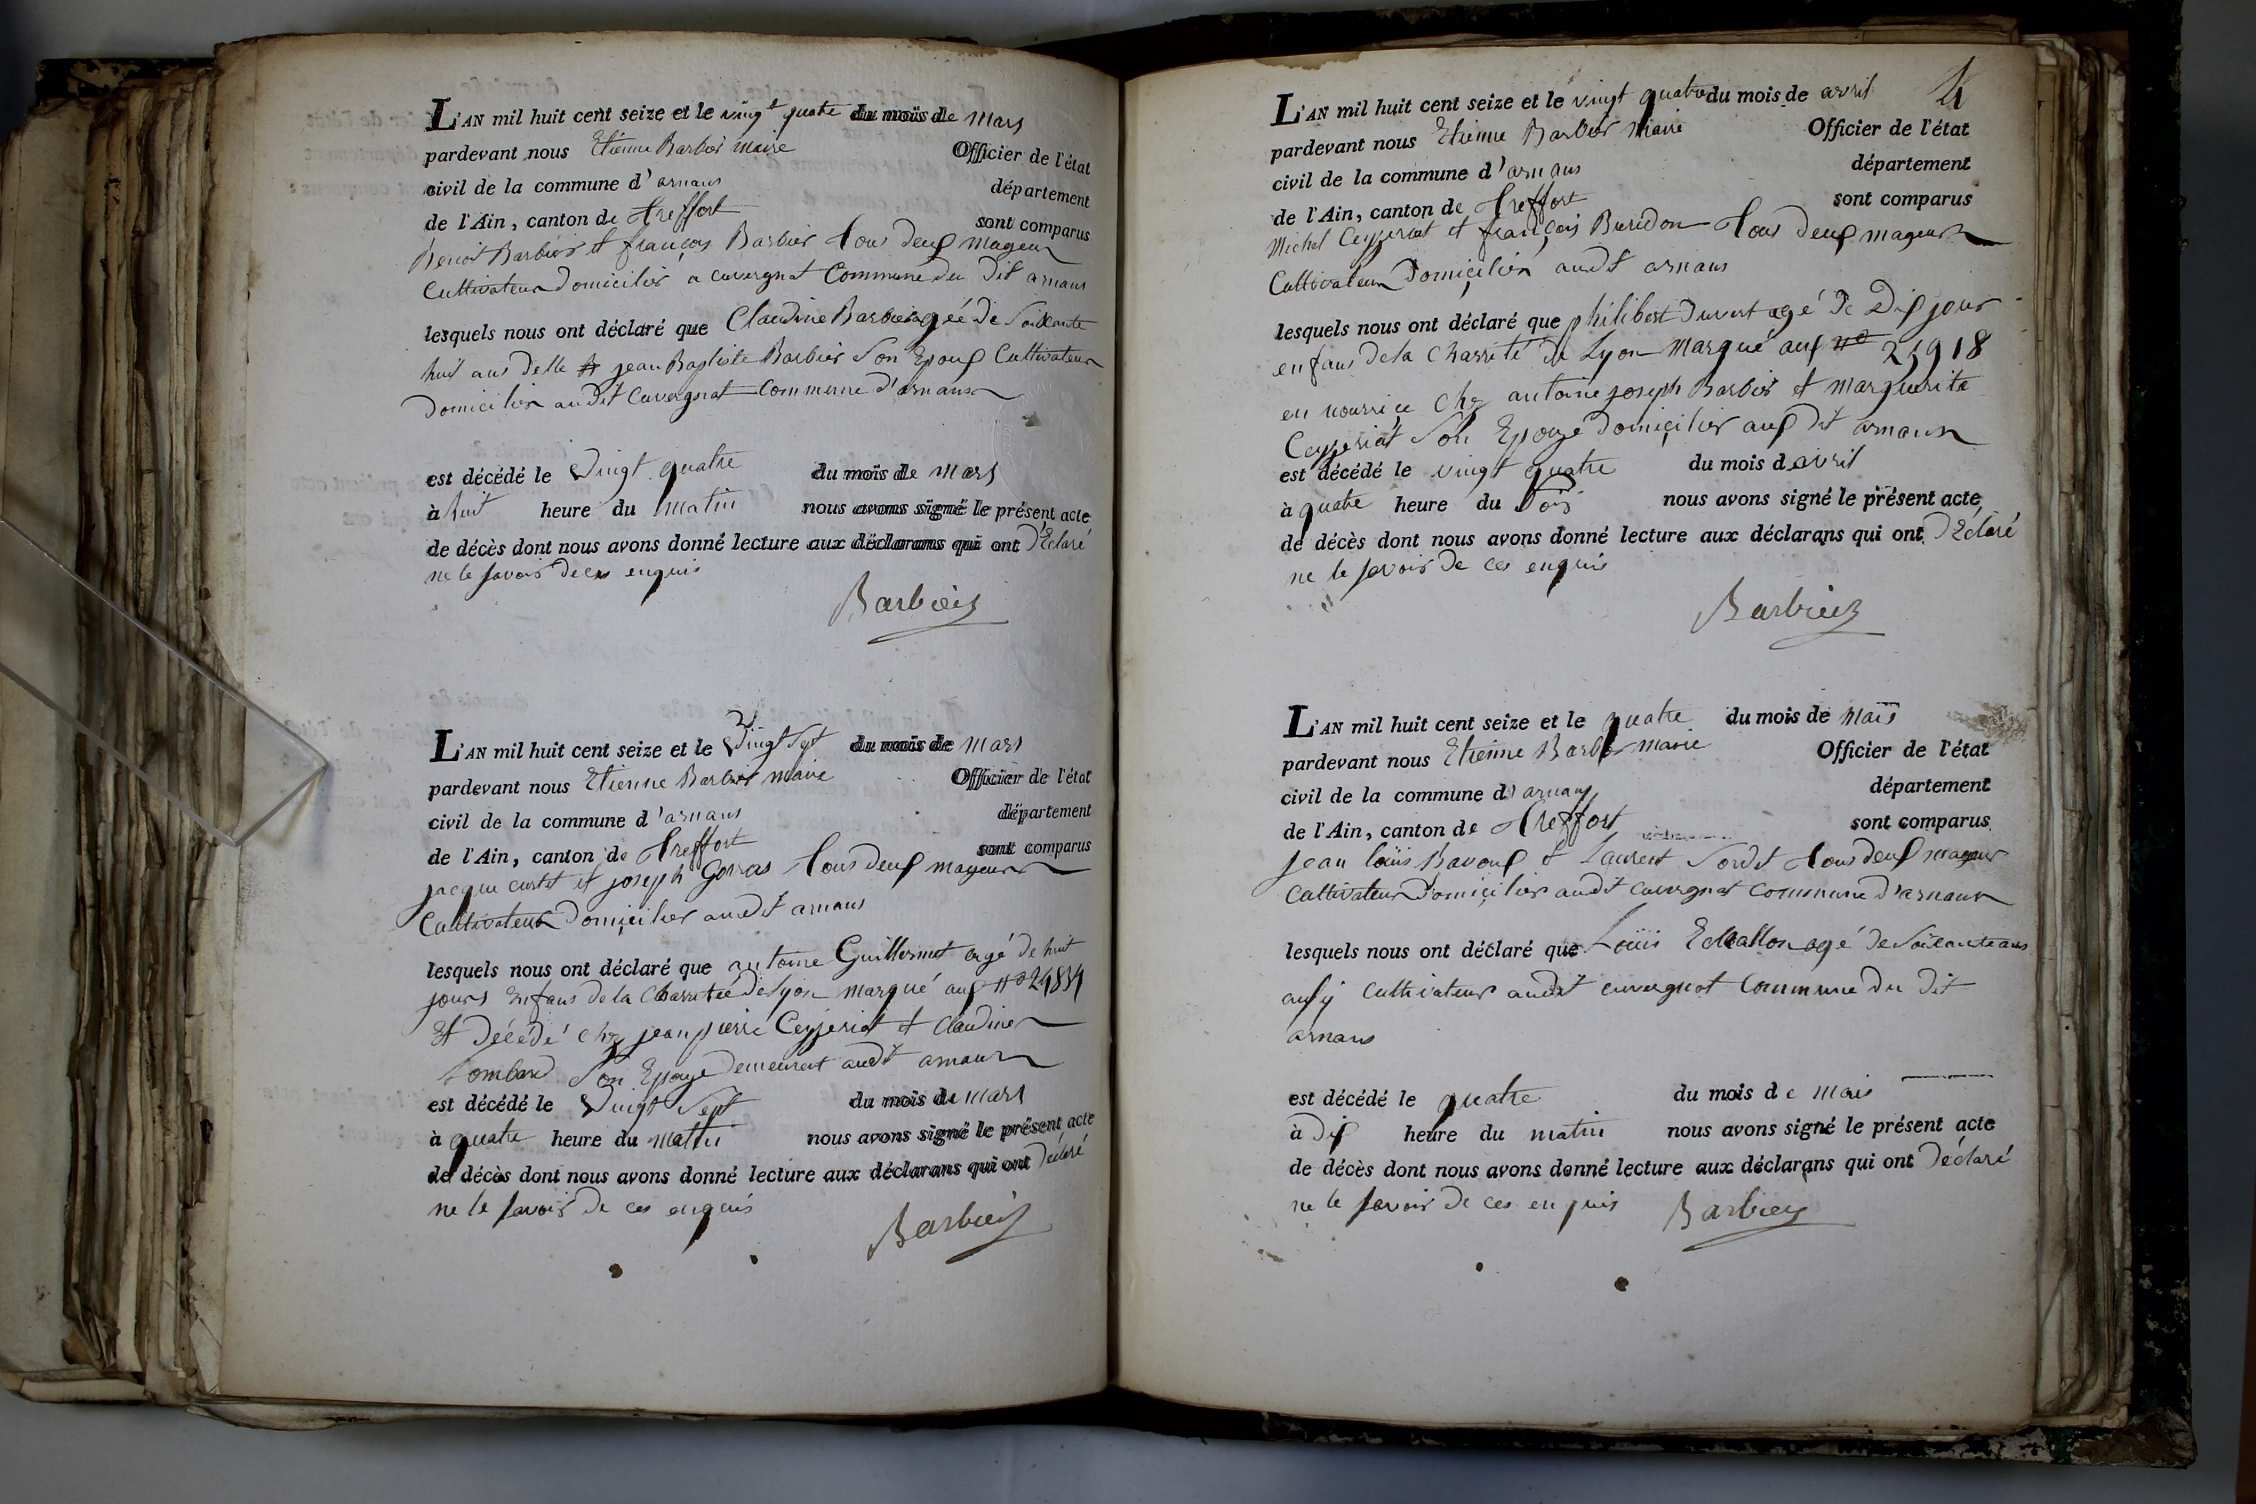 L'AN mil huit cent seize et le vingt quatre du mois de mars
pardevant nous Etienne Barbier maire Officier de l'état
civil de la commune d'arnans département
de l'Ain, canton de treffort sont comparus
Benoit Barbier et françois Barbier tous deux mageur
Cultivateur Domicilier a cuvergnat Commune du dit arnans
lesquels nous ont déclaré que Claudine Barbier agée de Soixante
huit ans jean Baptiste Barbier Son Epoux Cultivateur
Domicilier audit Cuvergnat Commune d'arnans
est décédé le Vingt quatre du mois de mars
à huit heure du matin nous avons signé le présent acte
de décès dont nous avons donné lecture aux déclarans qui ont Déclaré
ne le savoir de ces enquis
Barbier
L'AN mil huit cent seize et le Vingt Sept du mois de mars
pardevant nous Etienne Barbier maire Officier de l'état
civil de la commune d'arnans département
de l'Ain, canton de treffort sont comparus
jacque curtet et joseph Gorras tous deux mageur
Cultivateur Domicilier audit arnans
lesquels nous ont déclaré que antoine Guillermet agé de huit
jours Enfans de la Charritée de Lyon marqué aux no
Et Décédé chez jean pierre Ceyzeriat et Claudine
Lombard Son Epouze Demeurant audit arnans
est décédé le Vingt Sept du mois de mars
à quatre heure du matin nous avons signé le présent acte
de décès dont nous avons donné lecture aux déclarans qui ont Déclaré
ne le savoir de ces enquis
Barbier
4
L'AN mil huit cent seize et le vingt quatre du mois de avril
pardevant nous Etienne Barbier maire Officier de l'état
civil de la commune d'arnans département
de l'Ain, canton de treffort sont comparus
Michel Ceyzeriat et françois Buridon tous deux mageur
Cultivateur Domicilier audit arnans
lesquels nous ont déclaré que philibert Duvert agé de Dix jour
enfans de la Charrité de Lyon marqué aux no 25918
en nourrice chez antoine joseph Barbier et marguerite
Ceyzeriat Son Epouze Domicilier aux dit arnans
est décédé le vingt quatre du mois d'avril
à quatre heure du Soir nous avons signé le présent acte
de décès dont nous avons donné lecture aux déclarans qui ont Déclaré
ne le savoir de ces enquis
Barbier
L'AN mil huit cent seize et le quatre du mois de mais
pardevant nous Etienne Barbier marie Officier de l'état
civil de la commune d'arnans département
de l'Ain, canton de treffort sont comparus
jean louis Bavoux et Laurent Sordet tous deux mageur
Cultivateur Domicilier audit cuvergnat commune d'arnans
lesquels nous ont déclaré que Louis Echallon agé de Soixante ans
ausy cultivateur audit cuvergnat Commune du Dit
arnans
est décédé le quatre du mois de mais
à Dix heure du matin nous avons signé le présent acte
de décès dont nous avons donné lecture aux déclarans qui ont Déclaré
ne le savoir de ces enquis
Barbier